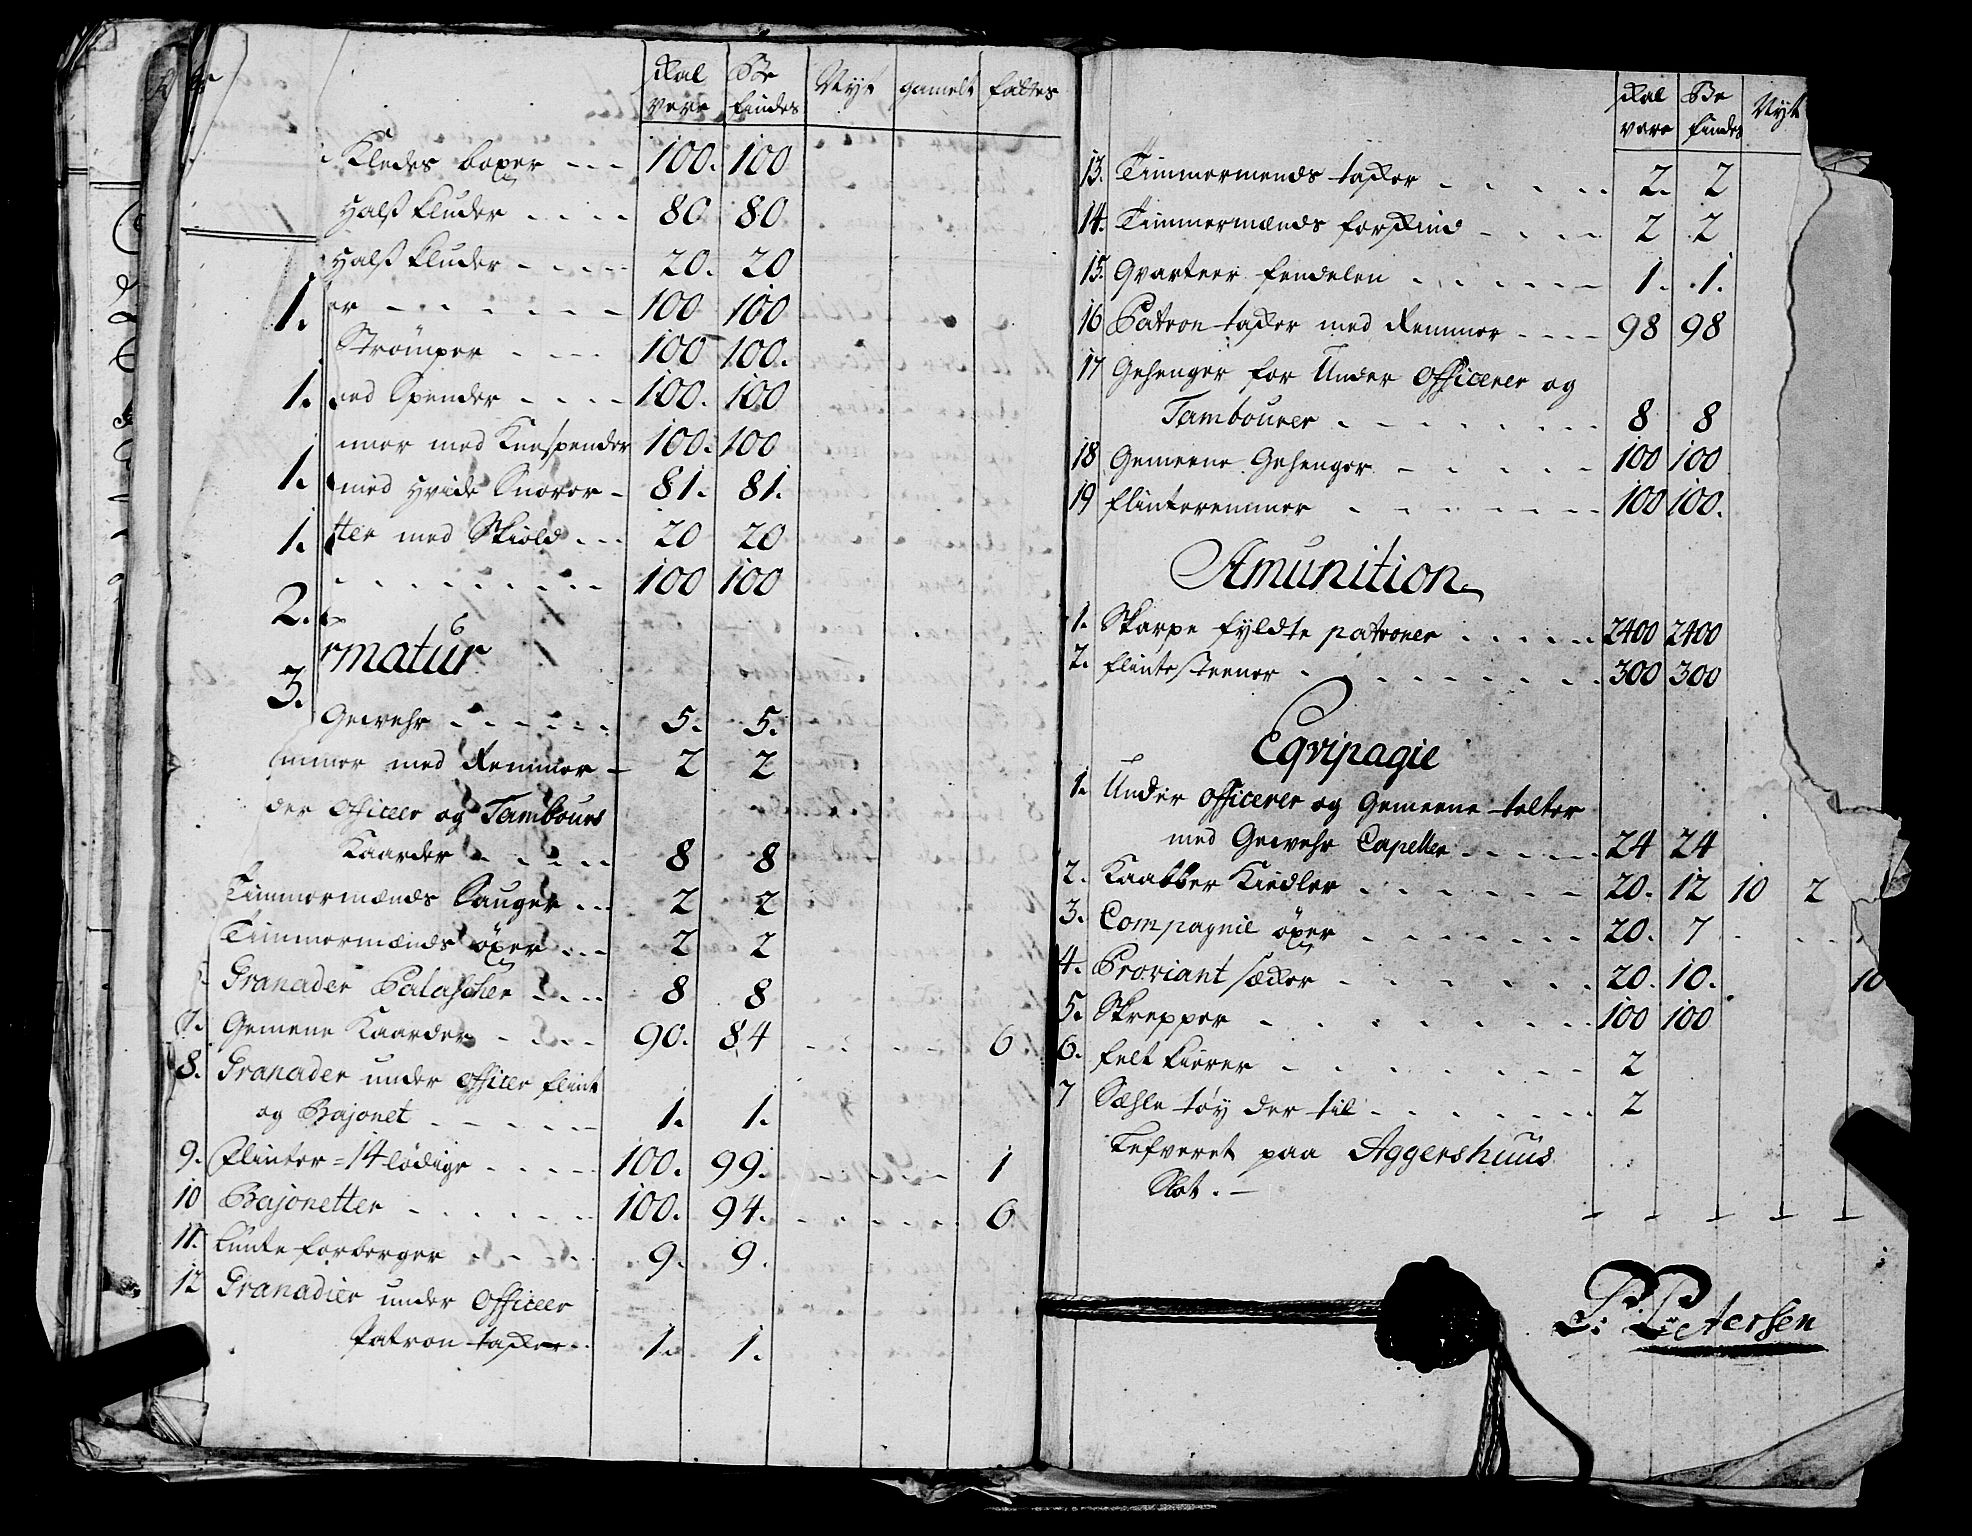 Skal Be Nyt gamelt fattes
være findes
Kledes boxer - - - 100. 100
Halss kluder - - - - 80 80
Halss kluder - - - - 20. 20
1. er - - - - - - 100 100
Strömper - - - 100 100.
1. med Spender - - - - 100. 100
mer med Knespender 100. 100
1. med Hvide Snorer - 81. 81.
1. tter med Skiold - - - 20 20
- - - - - - - - 100 100
2.
rmatur
3.
Gewehr - - - - - 5. 5.
mmer med Remmer - 2 2
der Officeer og Tambours
Kaarder - - - - 8 8
Timmermænds Sauger - - - 2 2
Timmermænds öxer - - - 2 2
Granader Palascher - - - - 8 8
7. Gemene Kaarder - - - - 90. 84 - - - - 6
8. Granader under Officer flint
og Bajonet - - - - - 1. 1.
9. Flinter = 14 lödige - - - - - 100. 99. - - - - 1
10 Bajonetter - - - - - - 100. 94. - - - - - 6
11. Lunte forberger - - - - 9. 9.
12 Granadier under Officeer
Patron tasker - 1. 1.
Skal Be Nyt
være findes
13. Timmermends tasker - - - - 2. 2
14. Timmermænds forskind - - - - 2 2
15. Qvarteer fendelen - - - - - 1. 1.
16 Patron tasker med Remmer - - - - 98 98
17 Gehenger for Under Officerer og
Tambourer - - - - - - - 8 8
18 Gemeene Gehenger - - - - - 100 100
19 flinteremmer - - - - - - 100 100.
Amunition
1. Skarpe fyldte patroner - - - - - 2400 2400
2. flintesteener - - - - - - - - 300 300
Eqvipagie
1. Under Officerer og Gemeene telter
med Gewehr Capeller - - - - - 24 24
2. Kaabber Kiedler - - - - - - 20. 12 10 2
3. Compagnie öxer - - - - - - 20. 7 - - -
4. Proviant sækker - - - - - - 20. 10. 10
5. Skrepper - - - - - - - 100 100
6. felt kierer - - - - - - - 2
7 Sæhle tøy der til - - - - - - 2
Lefveret paa Aggershuus
Slot. -
P: Petersen